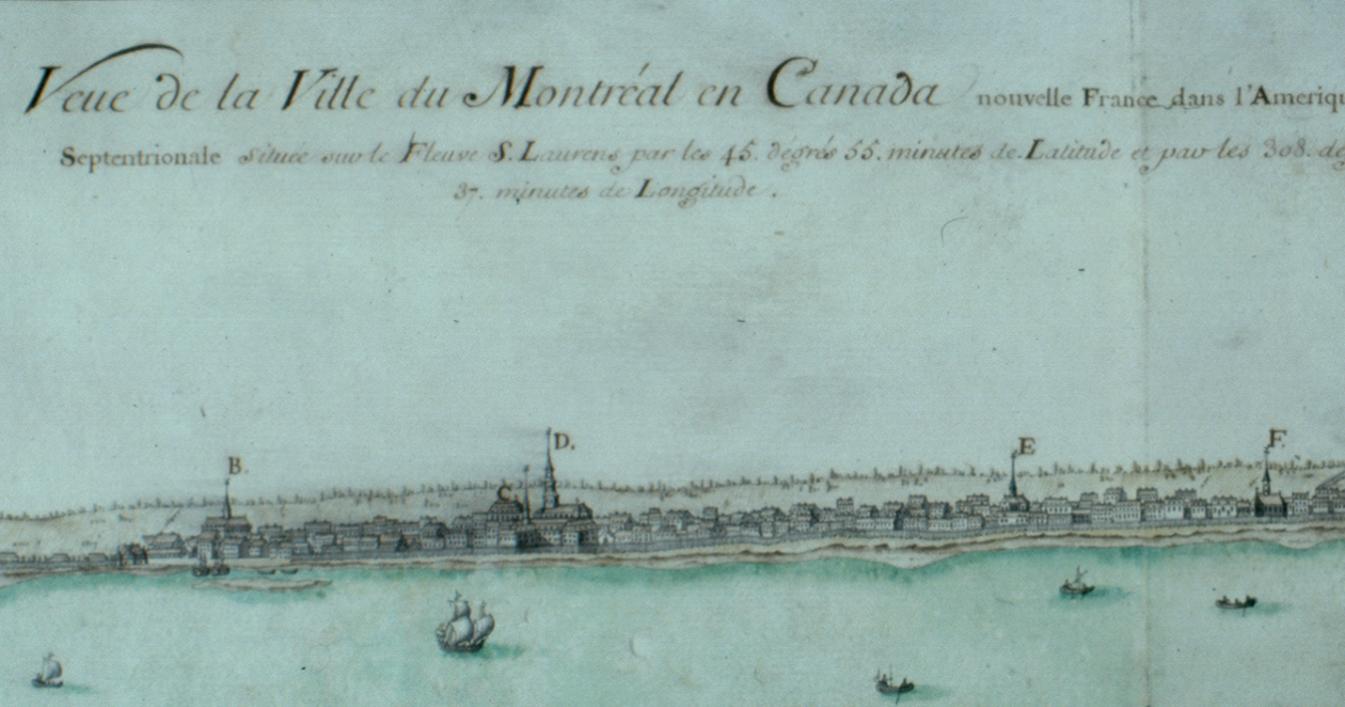 Veue de la Ville du Montréal en Canada nouvelle France dans l'Ameriqu
Septentrionale située sur le Fleuve S. Laurens par les 45. degrés 55. minutes de Latitude et par les 308. de
37. minutes de Longitude.
D.
E
F.
B.
C.